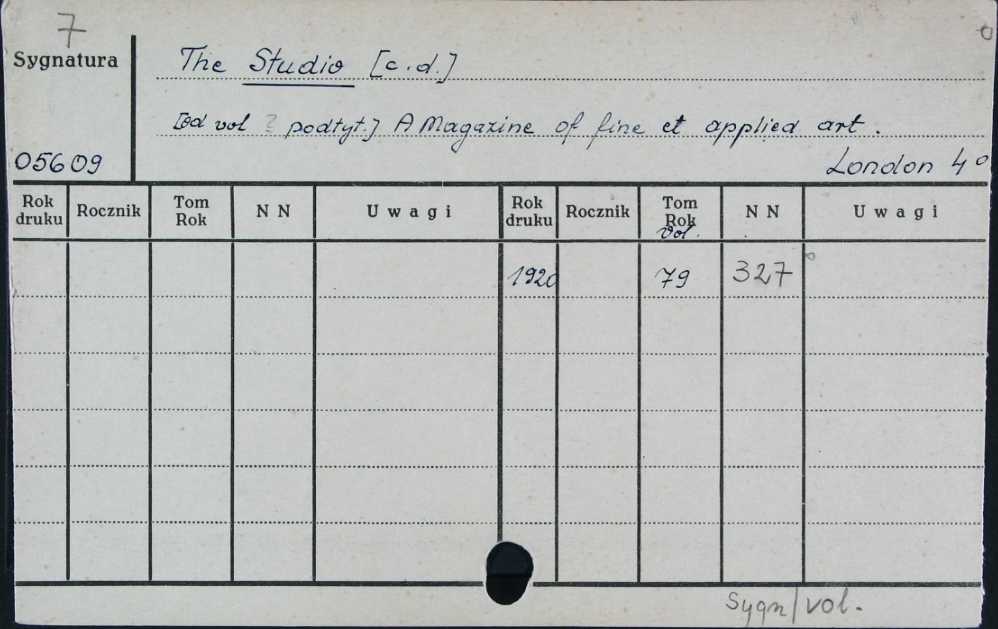 7
Sygnatura
The Studio [c.d.]
[od vol ? podtyt.] A Magazine of fine et applied art.
05609
London 4°
Rok druku Rocznik Tom Rok N N Uwagi Rok druku Rocznik Tom Rok Vol. N N Uwagi
1920 79 327
Sygn/vol.